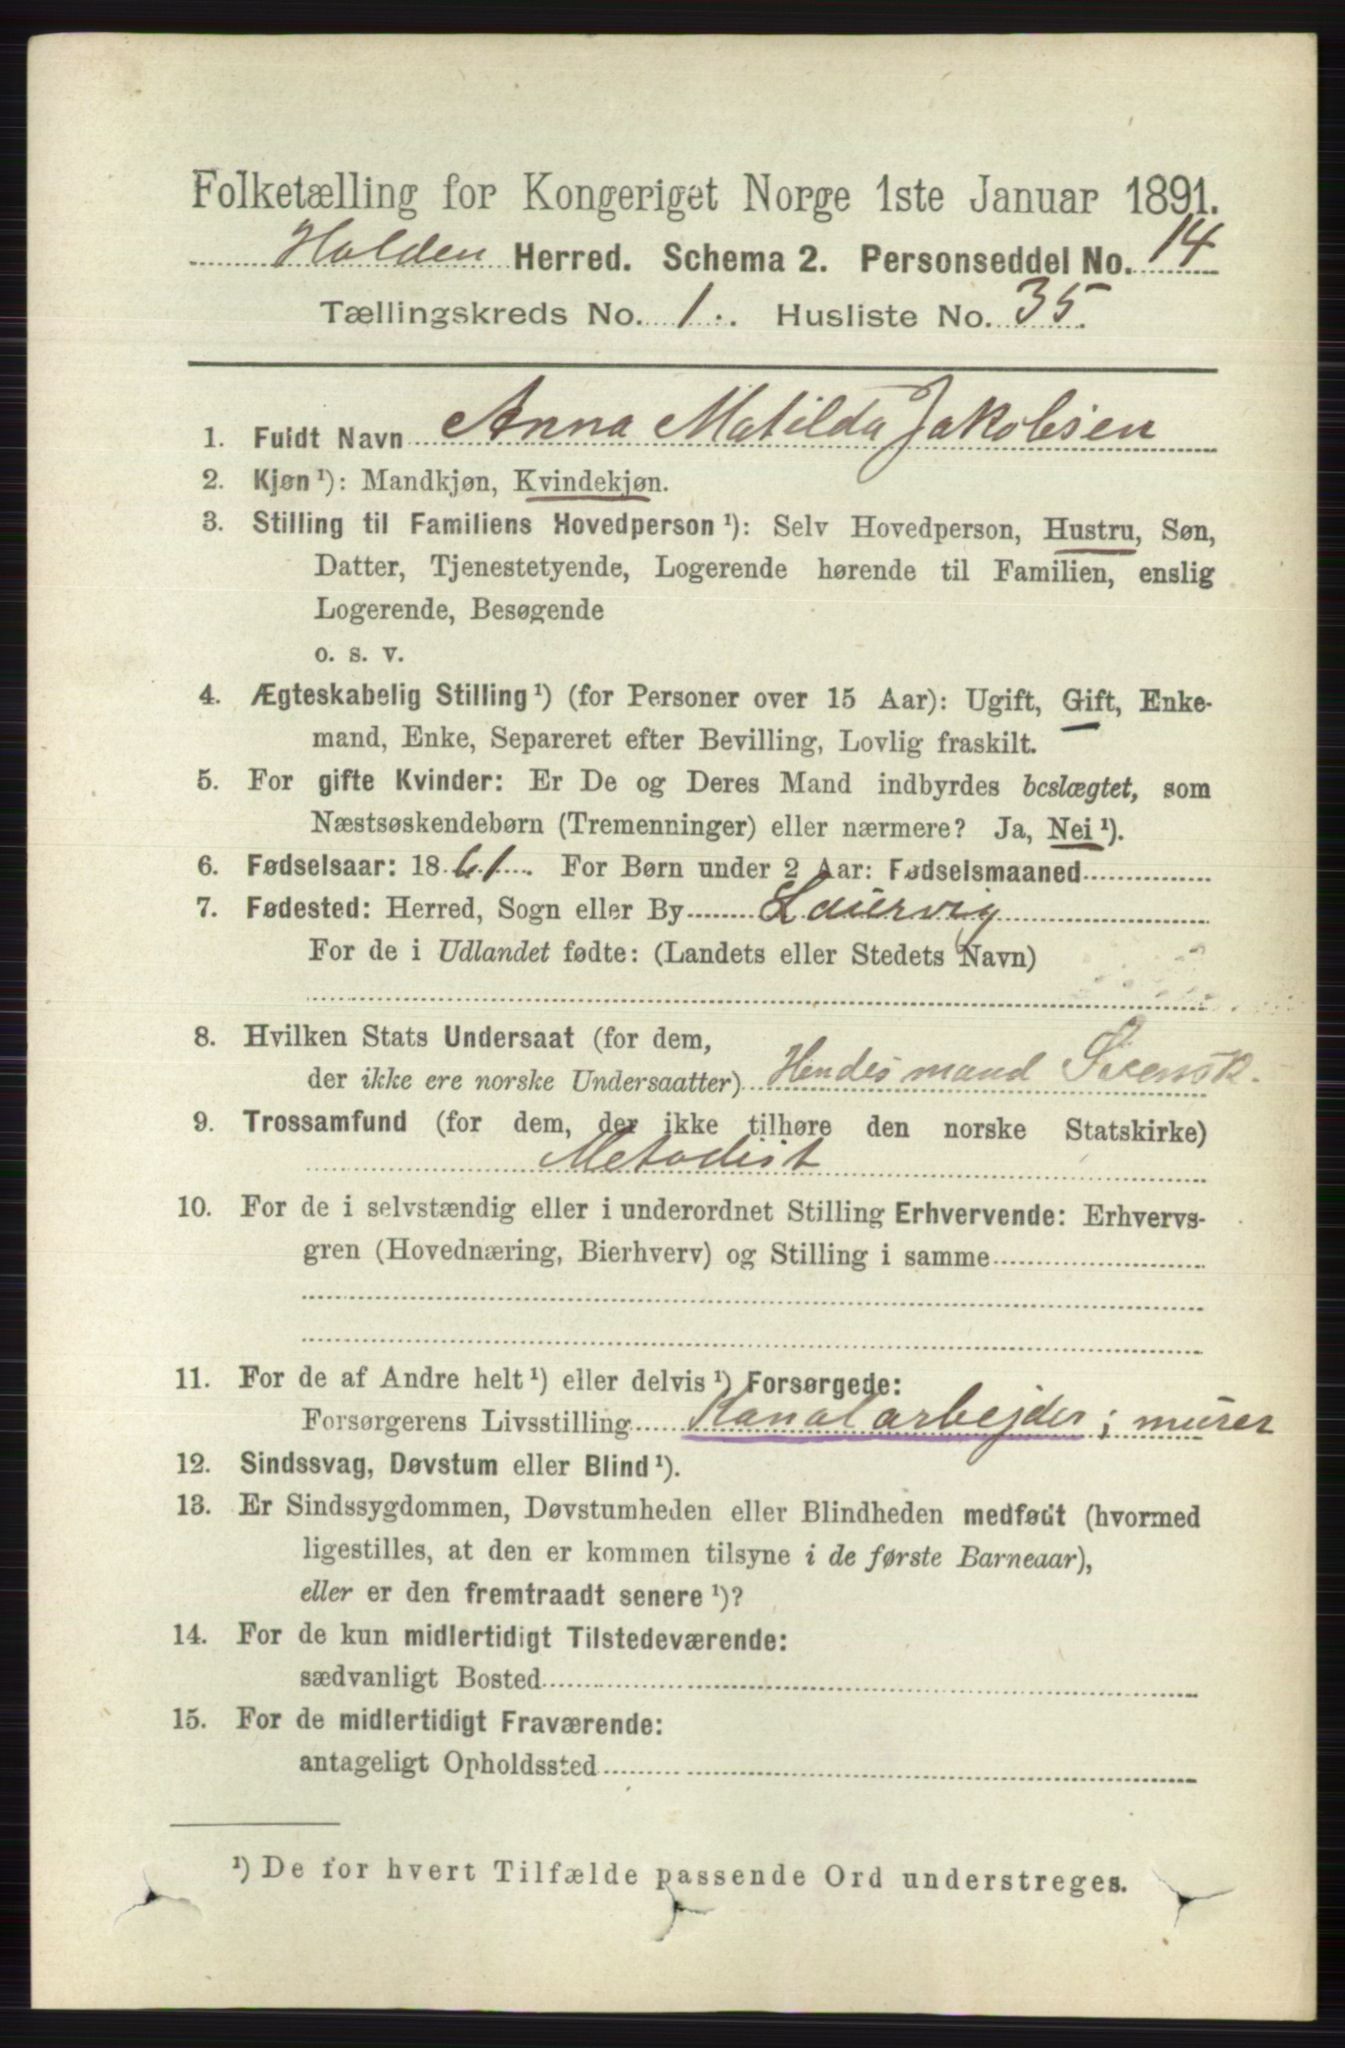 Folketælling for Kongeriget Norge 1ste Januar 1891.
Holden Herred. Schema 2. Personseddel No. 14
Tællingskreds No. 1. Husliste No. 35.
1. Fuldt Navn Anna Matilda Jakobsen
2. Kjøn ¹): Mandkjøn, Kvindekjøn.
3. Stilling til Familiens Hovedperson ¹): Selv Hovedperson, Hustru, Søn,
Datter, Tjenestetyende, Logerende hørende til Familien, enslig
Logerende, Besøgende
o. s. v.
4. Ægteskabelig Stilling ¹) (for Personer over 15 Aar): Ugift, Gift, Enke-
mand, Enke, Separeret efter Bevilling, Lovlig fraskilt.
5. For gifte Kvinder: Er De og Deres Mand indbyrdes beslægtet, som
Næstsøskendebørn (Tremenninger) eller nærmere? Ja, Nei ¹).
6. Fødselsaar: 1861. For Børn under 2 Aar: Fødselsmaaned
7. Fødested: Herred, Sogn eller By Laurvig
For de i Udlandet fødte: (Landets eller Stedets Navn)
8. Hvilken Stats Undersaat (for dem,
der ikke ere norske Undersaatter) Hendes mand Svensk.
9. Trossamfund (for dem, der ikke tilhøre den norske Statskirke)
Metodist
10. For de i selvstændig eller i underordnet Stilling Erhvervende: Erhvervs-
gren (Hovednæring, Bierhverv) og Stilling i samme
11. For de af Andre helt ¹) eller delvis ¹) Forsørgede:
Forsørgerens Livsstilling Kanalarbejder; murer
12. Sindssvag, Døvstum eller Blind ¹).
13. Er Sindssygdommen, Døvstumheden eller Blindheden medfødt (hvormed
ligestilles, at den er kommen tilsyne i de første Barneaar),
eller er den fremtraadt senere ¹)?
14. For de kun midlertidigt Tilstedeværende:
sædvanligt Bosted
15. For de midlertidigt Fraværende:
antageligt Opholdssted
¹) De for hvert Tilfælde passende Ord understreges.